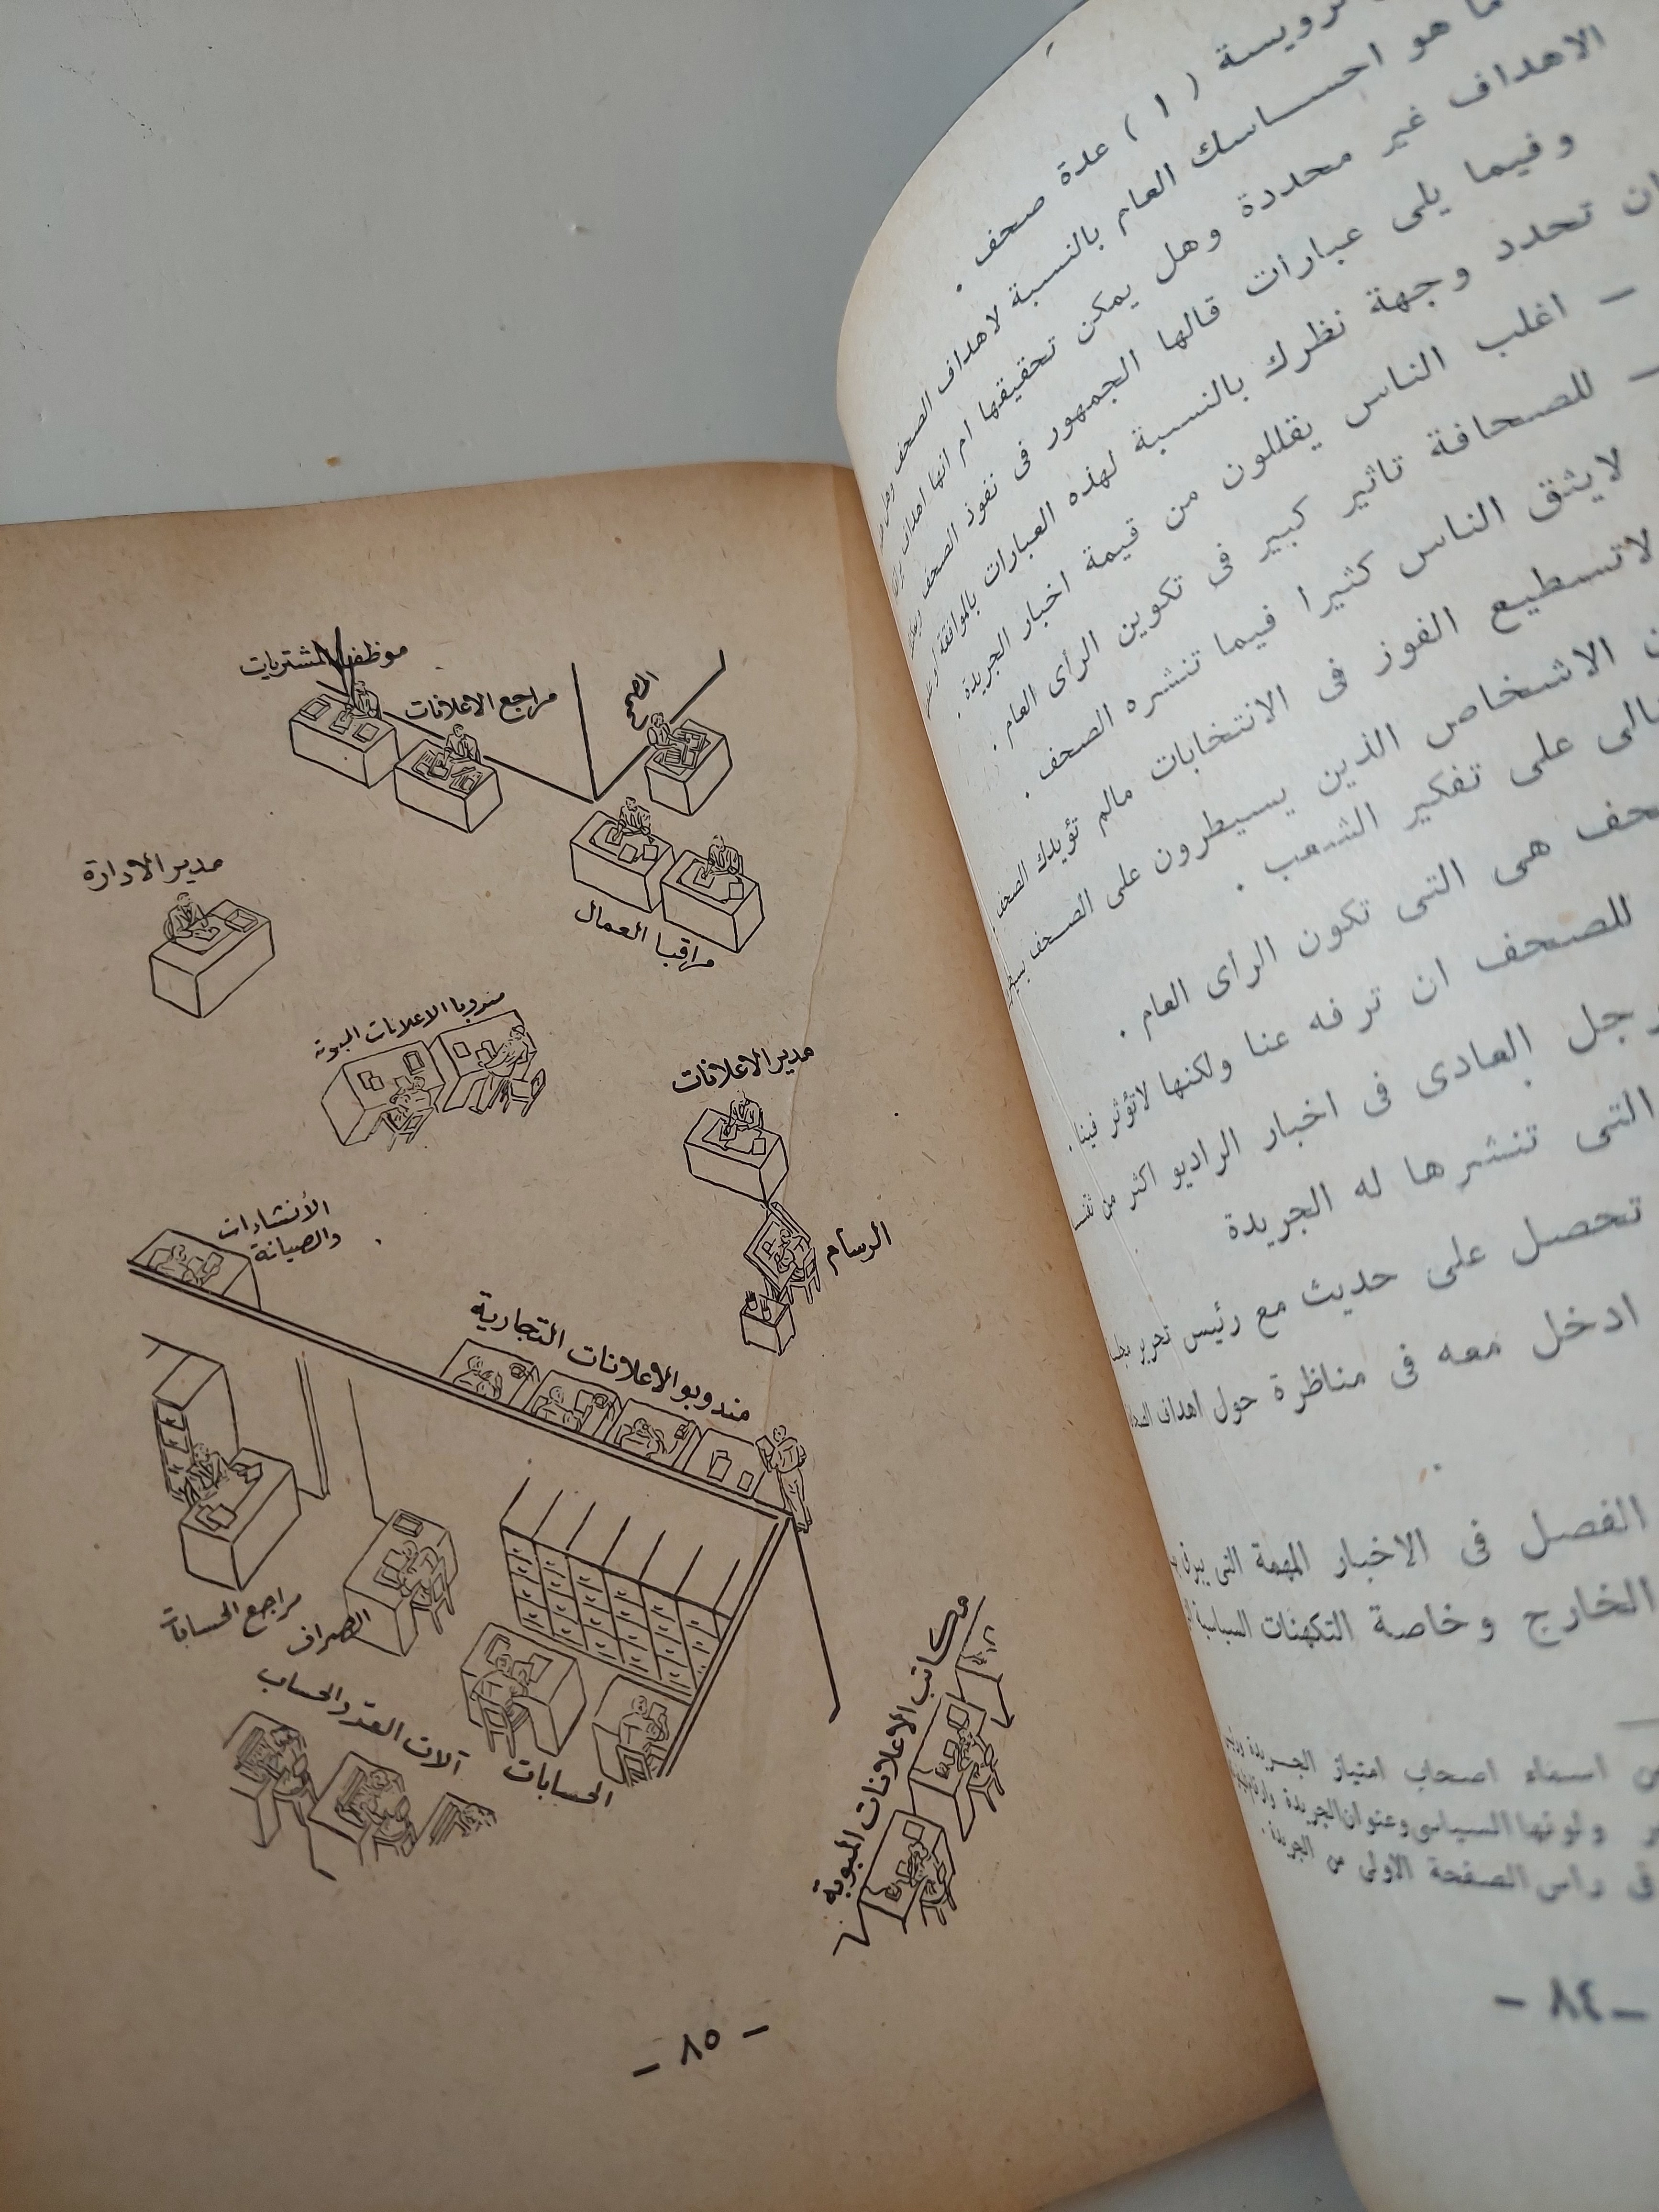 ترويسة ( ١ ) عدة صحف .
ما هو احساسك العام بالنسبة لاهداف الصحف وهل
الاهداف غير محددة وهل يمكن تحقيقها ام انها اهداف
وفيما يلى عبارات قالها الجمهور فى نفوذ الصحف
ان تحدد وجهة نظرك بالنسبة لهذه العبارات بالموافقة او
– اغلب الناس يقللون من قيمة اخبار الجريدة .
– للصحافة تاثير كبير فى تكوين الرأى العام .
لايثق الناس كثيرا فيما تنشره الصحف .
لاتسطيع الفوز فى الانتخابات مالم تؤيدك الصحف .
الاشخاص الذين يسيطرون على الصحف
على تفكير الشعب .
هى التى تكون الرأى العام .
للصحف ان ترفه عنا ولكنها لاتؤثر فينا .
العادى فى اخبار الراديو اكثر من
التى تنشرها له الجريدة
تحصل على حديث مع رئيس تحرير
ادخل معه فى مناظرة حول اهداف
الفصل فى الاخبار المهمة التى
الخارج وخاصة التكهنات السياسية
اسماء اصحاب امتياز الجريدة
ولونها السياسى وعنوان الجريدة
فى راس الصفحة الاولى من الجريدة .
– ٨٤ –
موظف المشتريات
مراجع الاعلانات
المصحح
مدير الادارة
مراقبا العمال
مندوبا الاعلانات المبوبة
مدير الاعلانات
الرسام
الأنشاءات
والصيانة
مندوبو الاعلانات التجارية
مراجع الحسابات
الصراف
آلات العد والحساب
الحسابات
مكاتب الاعلانات المبوبة
– ٨٥ –